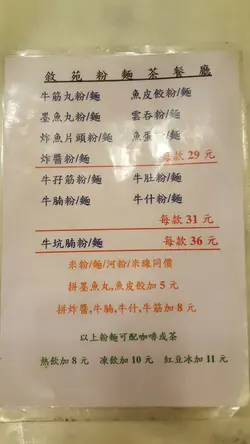 敘苑粉麵茶餐廳
牛筋丸粉/麵 魚皮餃粉/麵
墨魚丸粉/麵 雲吞粉/麵
炸魚片頭粉/麵 魚蛋粉/麵
炸醬粉/麵 每款 29 元
牛孖筋粉/麵 牛肚粉/麵
牛腩粉/麵 牛什粉/麵
每款 31 元
牛坑腩粉/麵 每款 36 元
米粉/麵/河粉/米線同價
拼墨魚丸,魚皮餃加 5 元
拼炸醬,牛腩,牛什,牛筋加 8 元
以上粉麵可配咖啡或茶
熱飲加 8 元 凍飲加 10 元 紅豆冰加 11 元